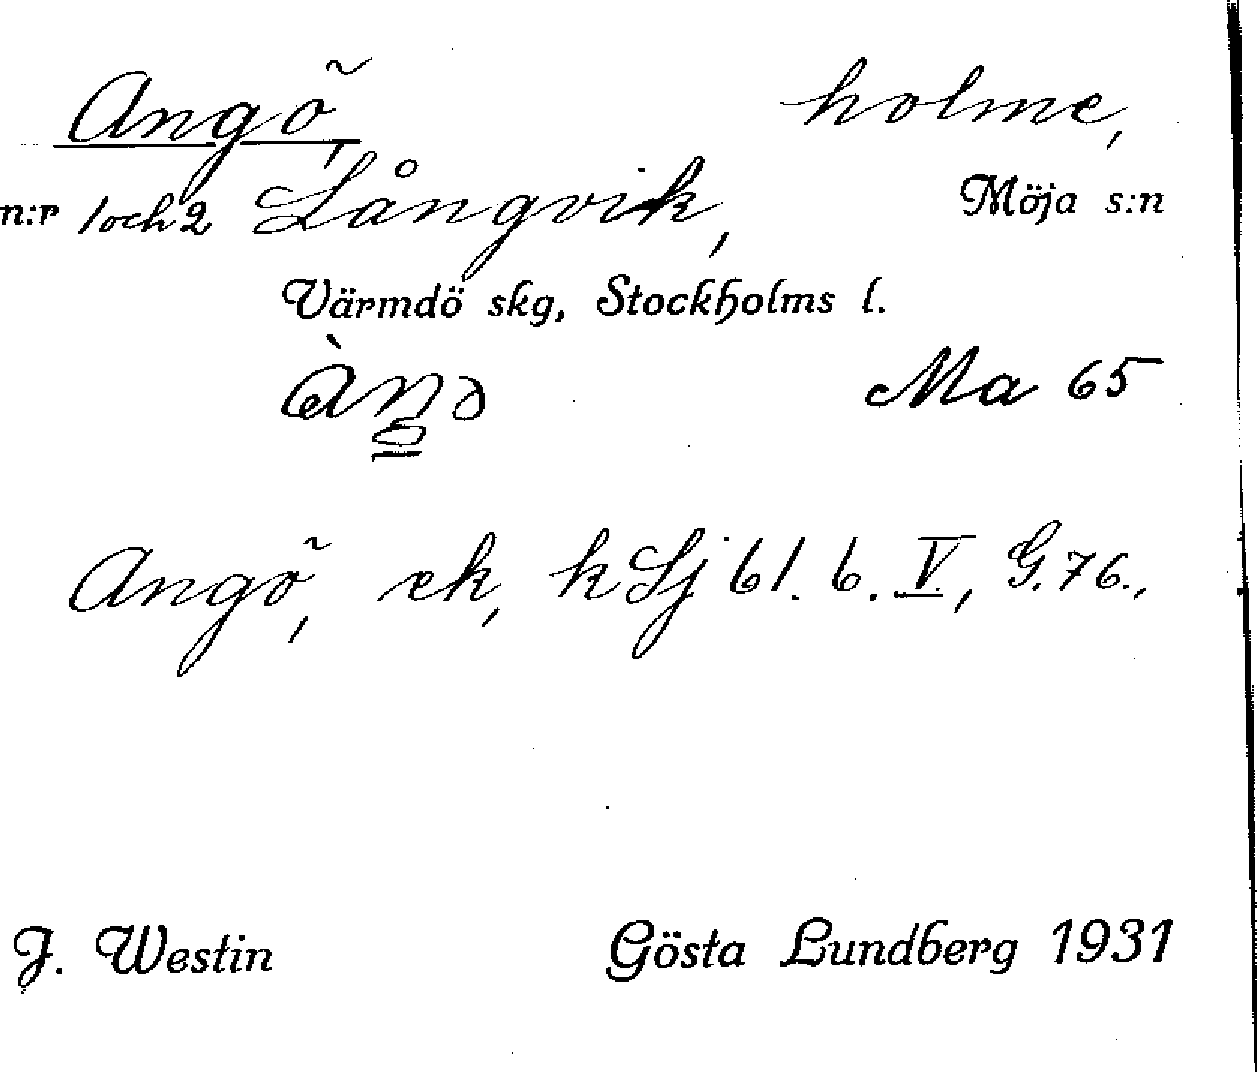 Angö, holme,
n:r 1 och 2 Långvik, Möja s:n
Värmdö skg, Stockholms l.
Ma 65
Angö, ek, k Sj 61. b. V, G. 76.,
J. Westin Gösta Lundberg 1931